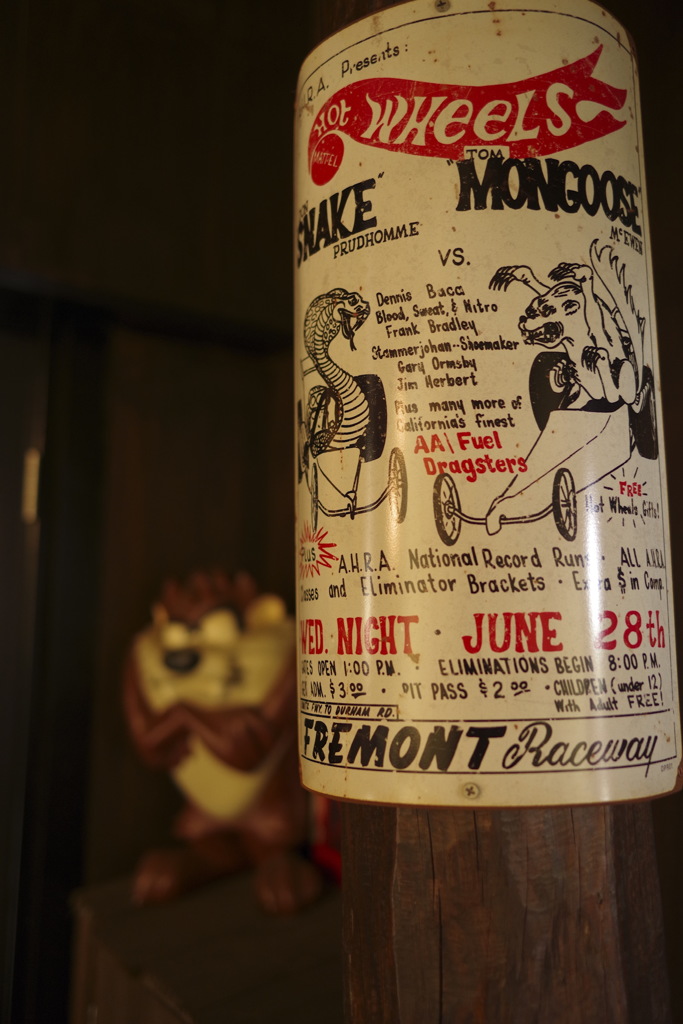 .R.A. Presents:
HOT WHEELS
MATTEL
TOM
"SNAKE" "MONGOOSE
PRUDHOMME McEWEN
VS.
Dennis Baca
Blood, Sweat, & Nitro
Frank Bradley
Stammerjohan--Shoemaker
Gary Ormsby
Jim Herbert
Plus many more of
California's finest
AA/Fuel
Dragsters
FREE
Hot Wheels Gifts!
Plus A.H.R.A. National Record Runs · ALL A.H.R.A
Classes and Eliminator Brackets · Extra $ in Comp.
WED. NIGHT · JUNE 28th
GATES OPEN 1:00 P.M. · ELIMINATIONS BEGIN 8:00 P.M.
ADM. $3.00 · PIT PASS $2.00 · CHILDREN (under 12)
With Adult FREE!
FWY. TO DURHAM RD.
FREMONT Raceway